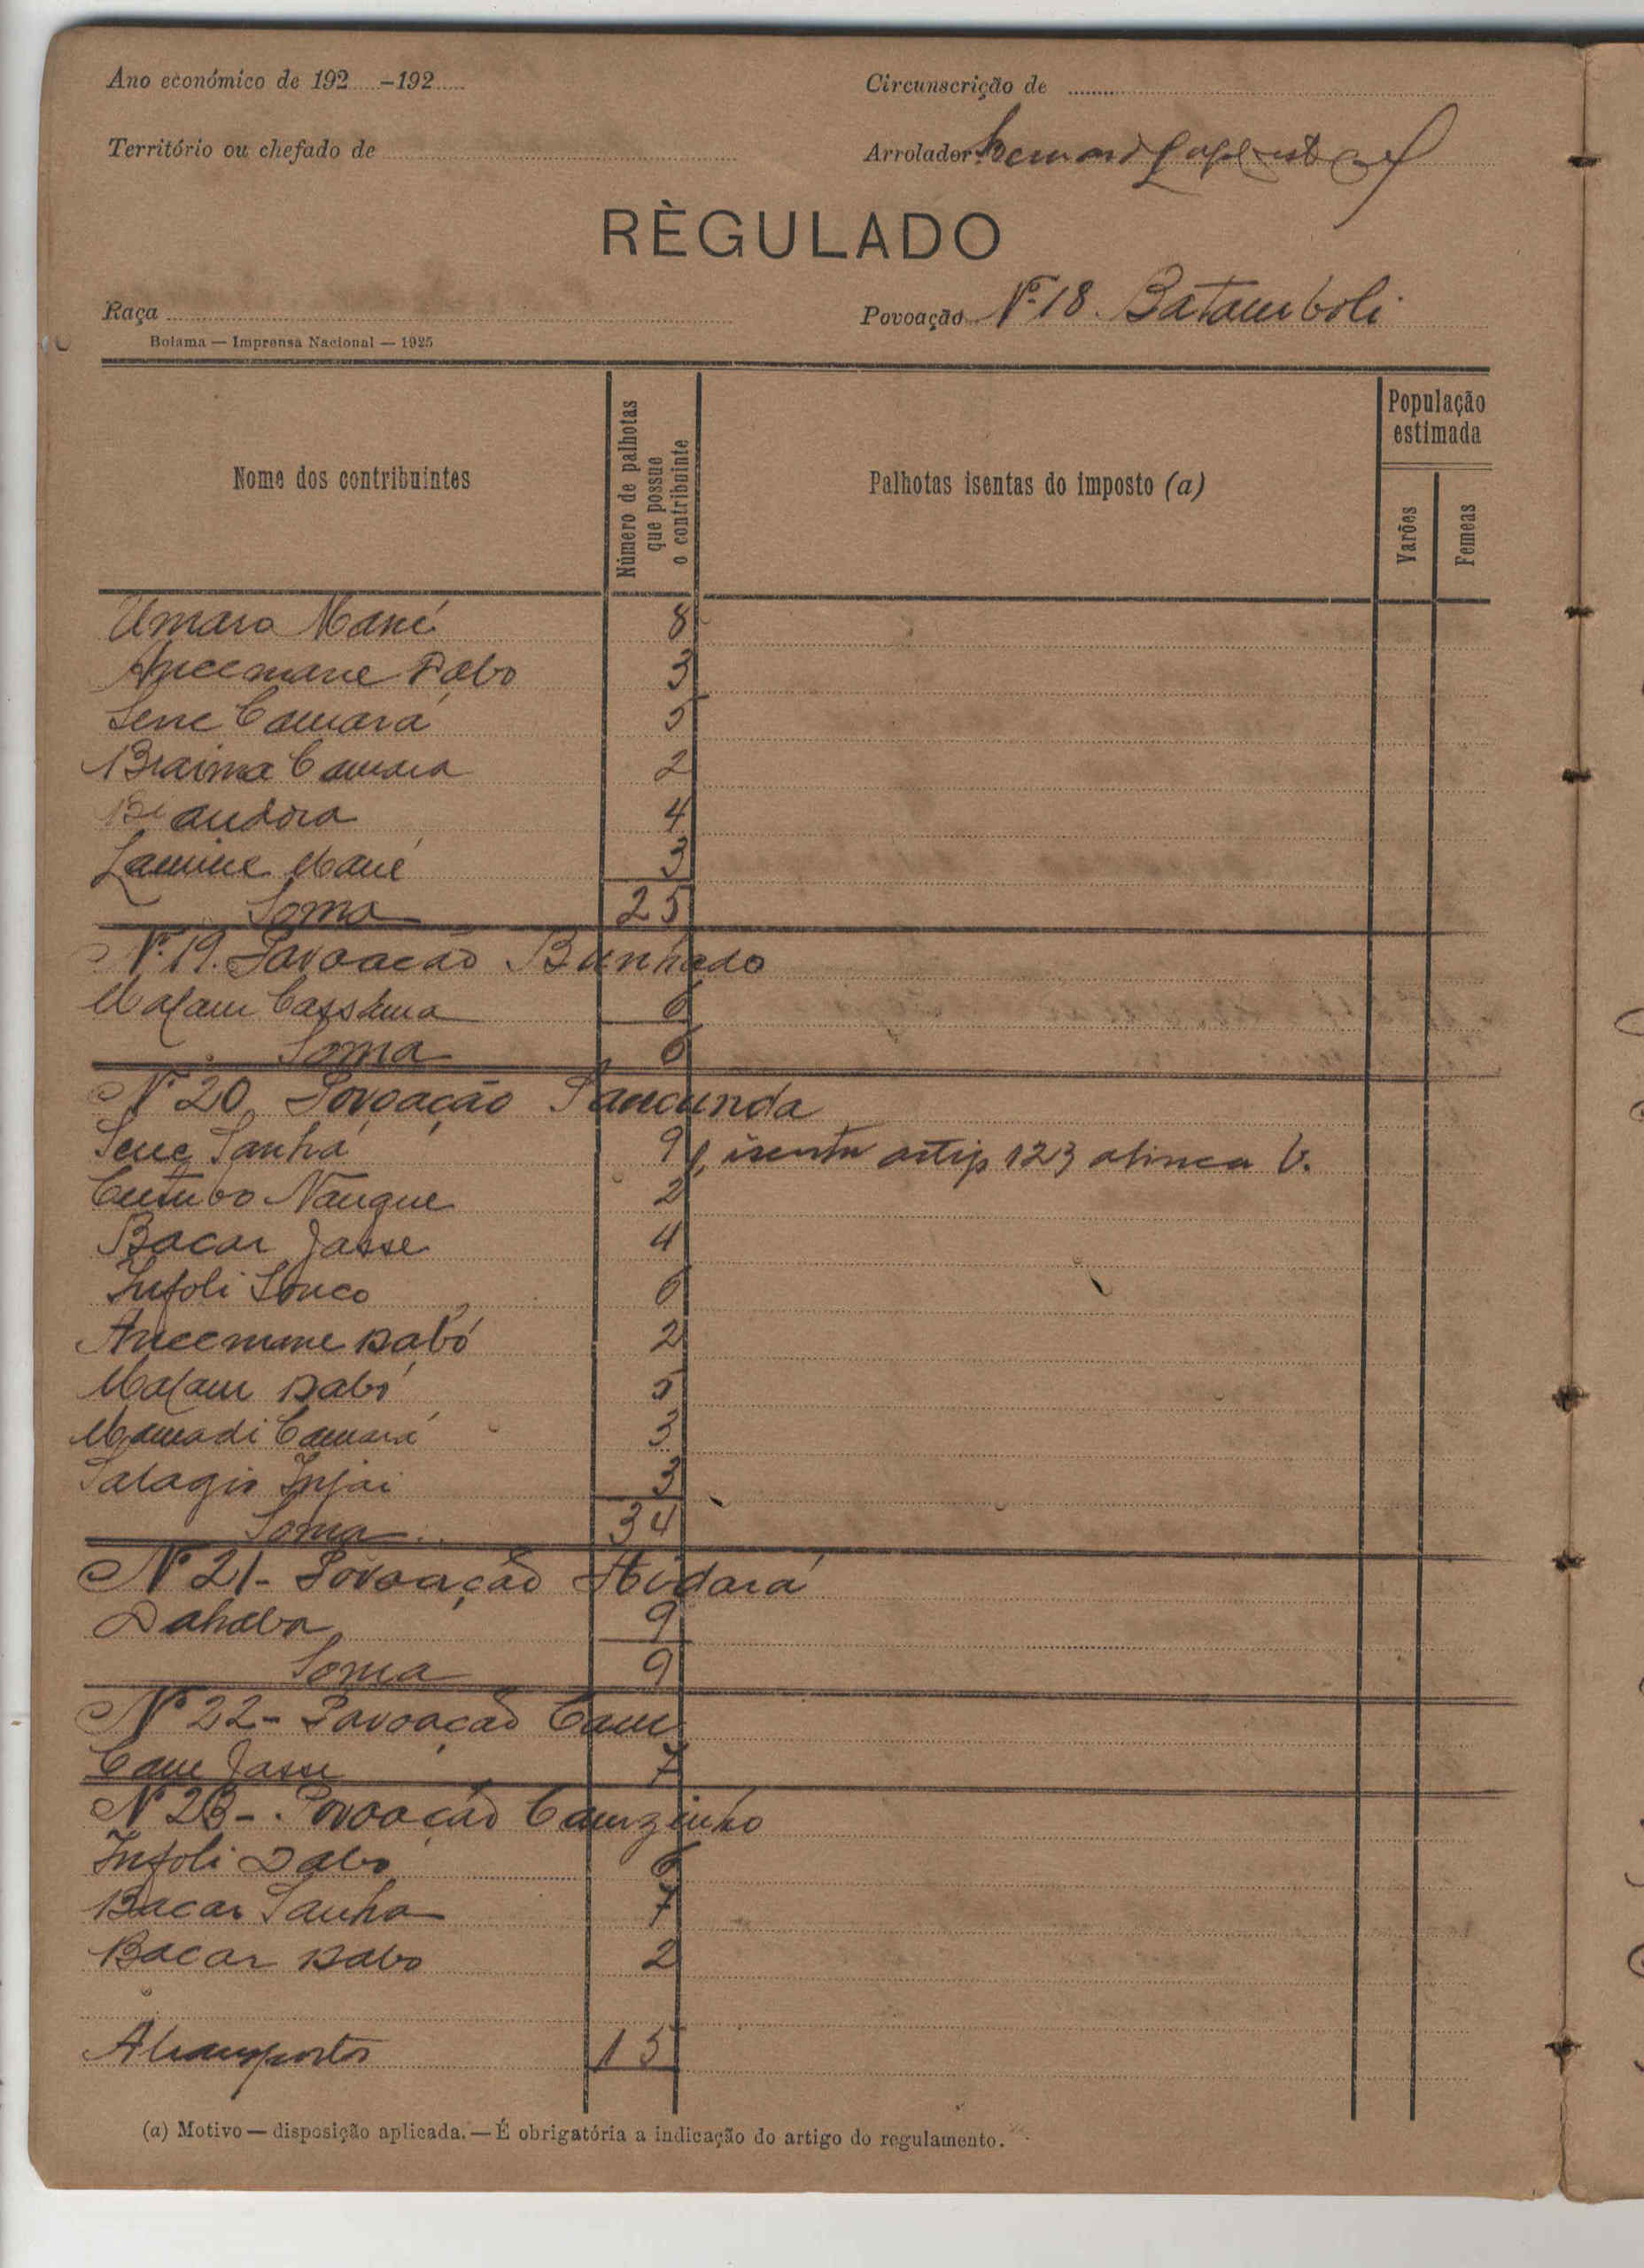 Ano económico de 192.....-192.....
Circunscrição de
Território ou chefado de
Arrolador
RÈGULADO
Raça
Povoação Nº 18. Batamboli
Bolama — Imprensa Nacional — 1925
Nome dos contribuintes
Número de palhotas que possue o contribuinte
Palhotas isentas do imposto (a)
População estimada
Varões
Femeas
Umaro Mané 8
Ancemane Dabo 3
Sene Camará 5
Braima Camara 2
4
Lamine Mané 3
Soma 25
Nº 19. Povoacão Banhado
Malam Cassama 6
Soma 6
Nº 20, Povoação Sancunda
Sene Sanhá 9 1, isento artip 123 alinea b.
Cutubo Nanque 2
Bacar Jasse 4
Infoli Sonco 6
Ancemane Dabó 2
Malam Dabó 5
Mamadi Camará 3
Salagis Injai 3
Soma 34
Nº 21- Povoação Aidará
Dahaba 9
Soma 9
Nº 22- Povoação Cam
Cam Jasse 7
Nº 23-. Povoação Camzinho
Infoli Dabo 6
Bacar Sanha 7
Bacar Dabo 2
A transportar 15
(a) Motivo — disposição aplicada. — É obrigatória a indicação do artigo do regulamento.